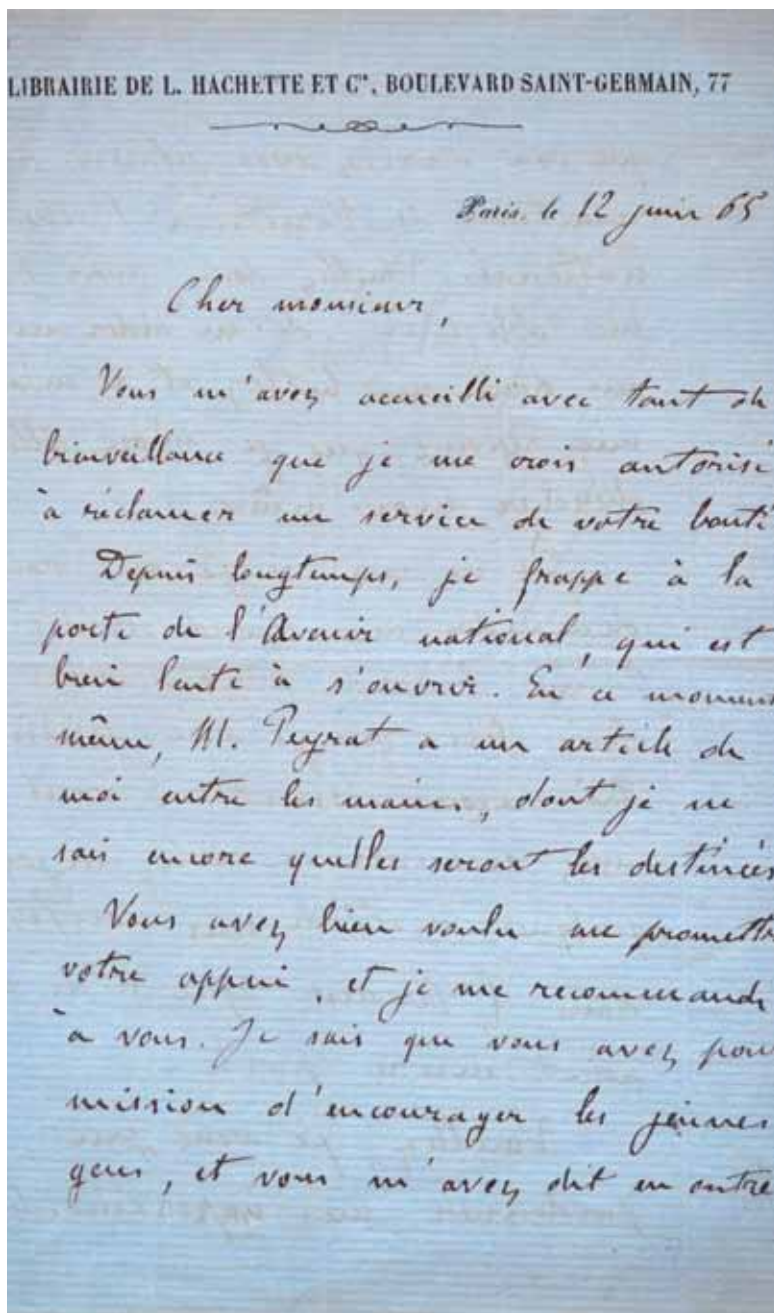 LIBRAIRIE DE L. HACHETTE ET Cie, BOULEVARD SAINT-GERMAIN, 77
Paris, le 12 juin 65
Cher monsieur,
Vous m'avez accueilli avec tant de
bienveillance que je me crois autorisé
à réclamer un service de votre bonté
Depuis longtemps, je frappe à la
porte de l'Avenir national, qui est
bien lente à s'ouvrir. En ce moment
même, M. Peyrat a un article de
moi entre les mains, dont je ne
sais encore quelles seront les destinées
Vous avez bien voulu me promettr
votre appui, et je me recommande
à vous. Je sais que vous avez pour
mission d'encourager les jeunes
gens, et vous m'avez dit en outre